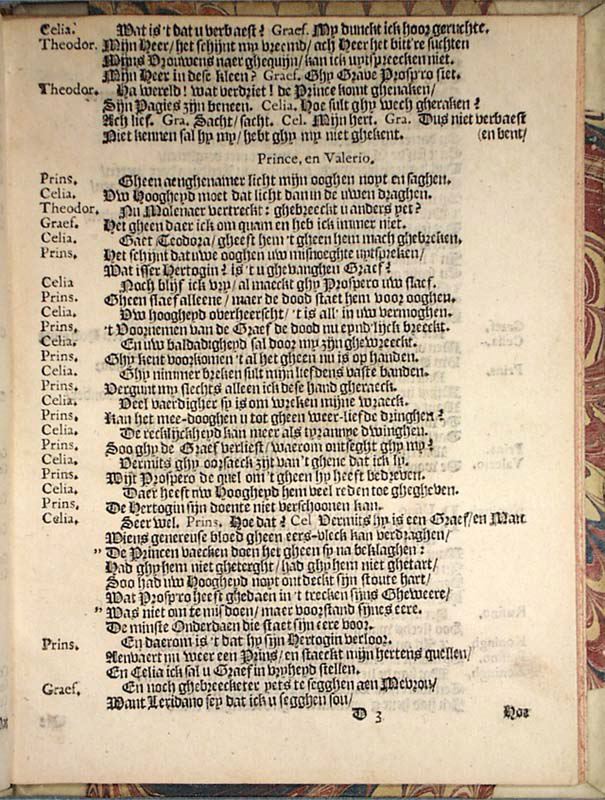 Celia. Wat is 't dat u verbaest? Graef. My dunckt ick hoor geruchte.
Theodor. Mijn Heer/ het schijnt my vreemd/ ach Heer het bitt're suchten
Mijns Vrouwens naer ghequijn/ kan ick uytspreecken niet.
Mijn Heer in dese kleen? Graef. Ghy Grave Prosp'ro siet.
Theodor. Ha wereld! wat verdriet! de Prince komt ghenaken/
Sijn Pagies zijn beneen. Celia. Hoe sult ghy wech gheraken?
Ach lief. Gra. Sacht/ sacht. Cel. Mijn hert. Gra. Dus niet verbaest
Niet kennen sal hy my/ hebt ghy my niet ghekent. (en bent/
Prince, en Valerio.
Prins. Gheen aenghenamer licht mijn ooghen noyt en saghen.
Celia. Uw Hoogheyd moet dat licht dan in de uwen draghen.
Theodor. Nu Molenaer vertreckt: ghebreeckt u anders yet?
Graef. Het gheen daer ick om quam en heb ick immer niet.
Celia. Gaet Teodora/ gheeft hem 't gheen hem mach ghebreken.
Prins. Het schijnt dat uwe ooghen uw misnoeghte uytspreken/
Wat isser Hertogin? is 't u ghevanghen Graef?
Celia Noch blijf ick vry/ al maeckt ghy Prospero uw slaef.
Prins. Gheen slaef alleene/ maer de dood staet hem voor ooghen.
Celia. Uw hoogheyd overheerscht/ 't is all' in uw vermoghen.
Prins. 't Voornemen van de Graef de dood nu eynd'lijck breeckt.
Celia. En uw baldadigheyd sal door my zijn ghewreeckt.
Prins. Ghy kent voorkomen 't al het gheen nu is op handen.
Celia. Ghy nimmer breken sult mijn liefdens vaste banden.
Prins. Vergunt my slechts alleen ick dese hand gheraeck.
Celia. Veel vaerdigher sy is om wreken mijne wraeck.
Prins. Kan het mee-dooghen u tot gheen weer-liefde dringhen?
Celia. De recklijckheyd kan meer als tyrannye dwinghen.
Prins. Soo ghy de Graef verliest/ waerom ontseght ghy my?
Celia. Vermits ghy oorsaeck zijt van 't ghene dat ick ly.
Prins. Wijt Prospero de quel om 't gheen hy heeft bedreven.
Celia. Daer heeft uw Hoogheyd hem veel reden toe ghegheven.
Prins. De Hertogin sijn doente niet verschoonen kan.
Celia. Seer wel. Prins. Hoe dat? Cel Vermits hy is een Graef/ en Man
Wiens genereuse bloed gheen eers-vleck kan verdraghen/
" De Princen vaecken doen het gheen sy na beklaghen:
Had ghy hem niet gheterght/ had ghy hem niet ghetart/
Soo had uw Hoogheyd noyt ontdeckt sijn stoute hart/
Wat Prosp'ro heeft ghedaen in 't trecken sijns Gheweere/
" Was niet om te misdoen/ maer voorstand sijnes eere.
De minste Onderdaen die staet sijn eere voor.
Prins. En daerom is 't dat hy sijn Hertogin verloor.
Aenvaert nu weer een Prins/ en staeckt mijn hertens quellen/
En Celia ick sal u Graef in vryheyd stellen.
Graef. En noch ghebreecketer yets te segghen aen Mevrou/
Want Lexidano sey dat ick u segghen sou/
D 3 Hoe